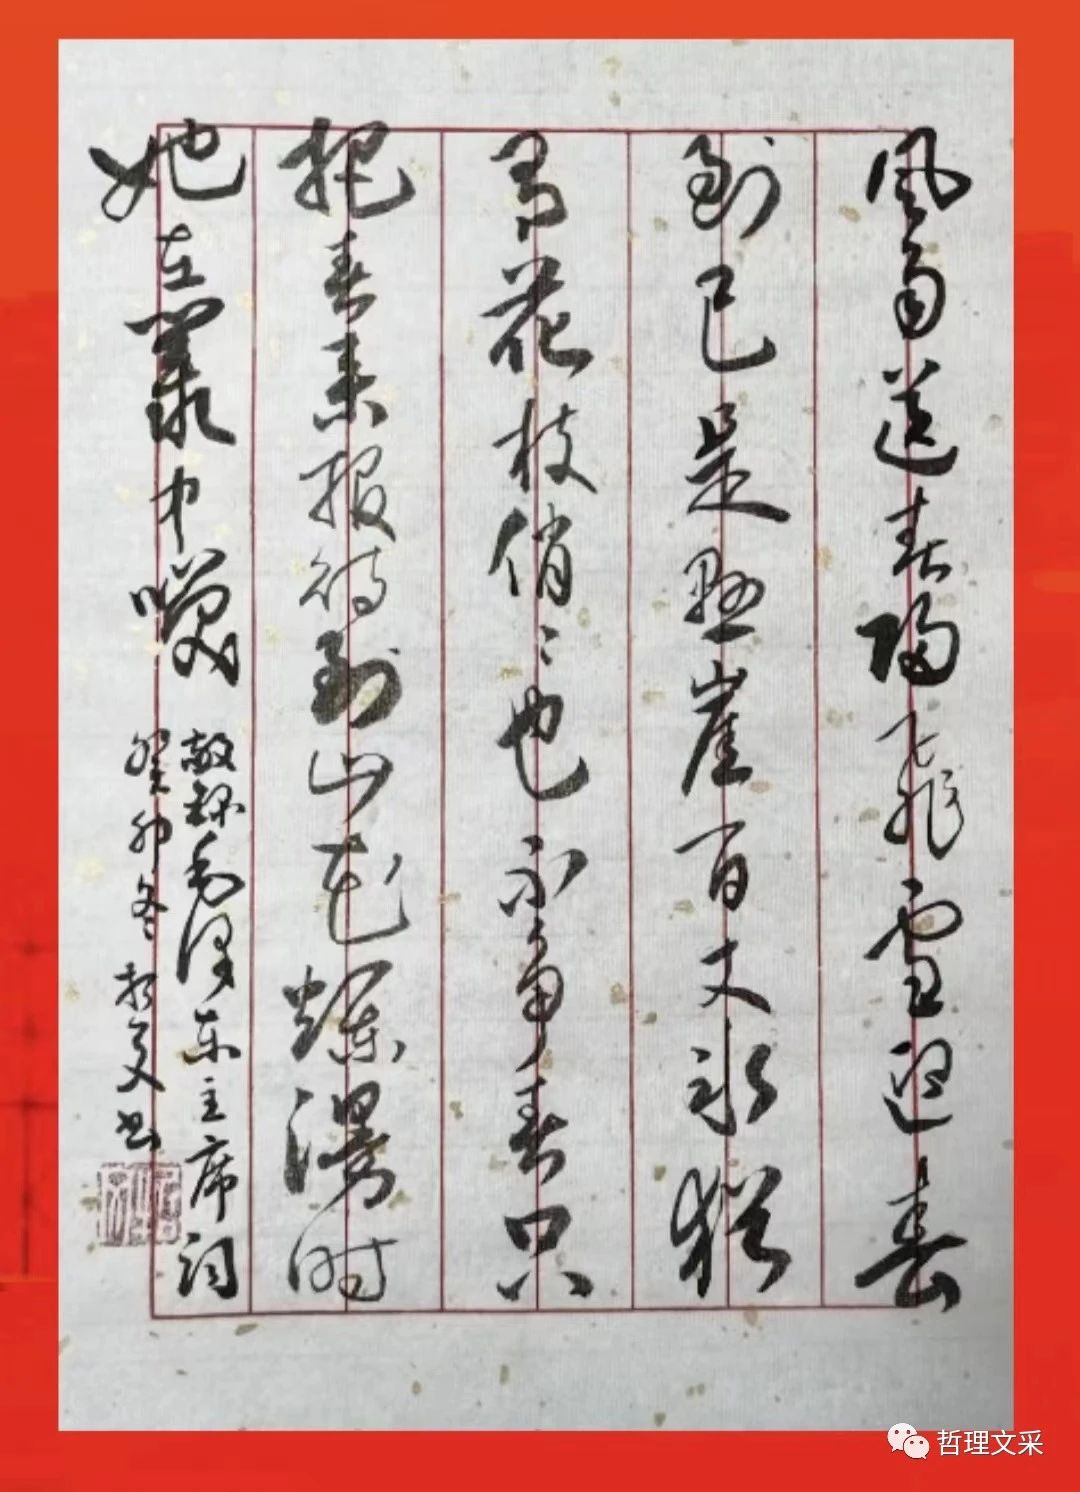 风雨送春归飞雪迎春
到已是悬崖百丈冰犹
有花枝俏俏也不争春只
把春来报待到山花烂漫时
她在丛中笑
敬录毛泽东主席词
癸卯冬
书
哲理文采